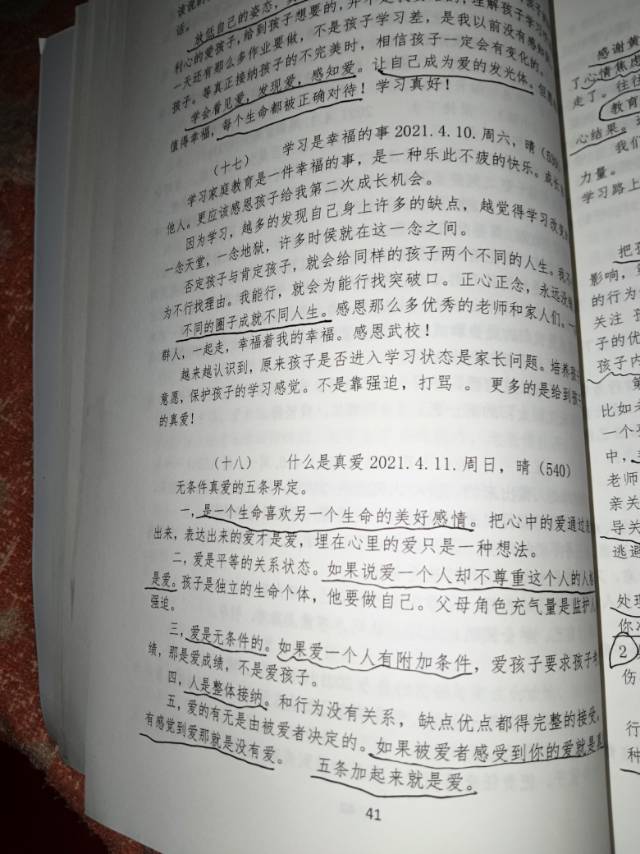 话。放低自己的姿态，
利心的爱孩子，给到孩子想要的，
一天还有那么多作业要做，不是孩子学习差，是我以前没有感知
孩子。等真正接纳孩子的不完美时，相信孩子一定会有变化的。
学会看见爱，发现爱，感知爱。让自己成为爱的发光体。
值得幸福，每个生命都被正确对待！学习真好！
（十七） 学习是幸福的事 2021.4.10.周六，晴（539）
学习家庭教育是一件幸福的事，是一种乐此不疲的快乐。成长
他人。更应该感恩孩子给我第二次成长机会。
因为学习，越多的发现自己身上许多的缺点，越觉得学习改变
一念天堂，一念地狱，许多时侯就在这一念之间。
否定孩子与肯定孩子，就会给同样的孩子两个不同的人生。我不
为不行找理由。我能行，就会为能行找突破口。正心正念，永远没
不同的圈子成就不同人生。感恩那么多优秀的老师和家人们。一
群人，一起走，幸福着我的幸福。感恩武校！
越来越认识到，原来孩子是否进入学习状态是家长问题。培养孩子
意愿，保护孩子的学习感觉。不是靠强迫，打骂 。 更多的是给到孩子
的真爱！
（十八） 什么是真爱 2021.4.11.周日，晴（540）
无条件真爱的五条界定。
一，是一个生命喜欢另一个生命的美好感情。把心中的爱通过
出来，表达出来的爱才是爱，埋在心里的爱只是一种想法。
二，爱是平等的关系状态。如果说爱一个人却不尊重这个人的人
是爱。孩子是独立的生命个体，他要做自己。父母角色充气量是监护人
强迫。
三，爱是无条件的。如果爱一个人有附加条件，爱孩子要求孩子考
绩，那是爱成绩，不是爱孩子。
四，人是整体接纳。和行为没有关系，缺点优点都得完整的接受。
五，爱的有无是由被爱者决定的。如果被爱者感受到你的爱就是真
有感觉到爱那就是没有爱。 五条加起来就是爱。
41
感谢黄
了心情焦虑
走了。往往
教育
心结果。
我们
力量。
学习路上
把孩
影响，
的行为
关注
子的优
孩子内
第
比如
一个
中，
老师
亲关
导关
逃避
处理
你
2
伤
行
种